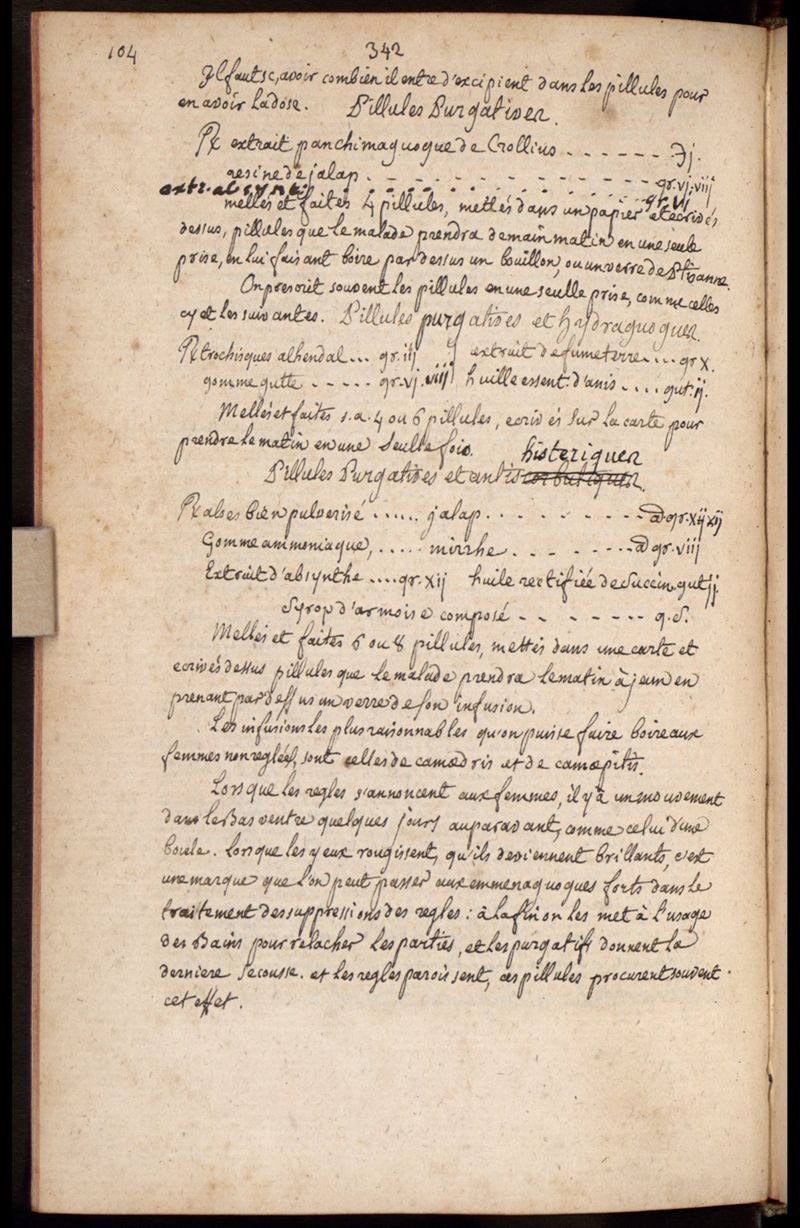 104
342
Ilfaut sçavoir combien il entre d'excipient dans les pillules pour
en avoir la dose. Pillules Purgatives.
℞ extrait panchimagogue de Crollius . . . . . . ℈j.
resine de jalap . - - - - - - - - - - gr. vj. viij
extr. absynth. . . . . . . . . . gr. vj
mellés et faites 4 pillules, mettés dans un papier et ecrivés
dessus, pillules que le malade prendra demain matin en une seule
prise, en lui faisant boire par dessus un bouillon, ou un verre de Ptisanne.
On prescrit souvent les pillules en une seulle prise, comme celles
cy et les suivantes. Pillules purgatives et hydraguogues.
℞ trochisques alhendal... gr. iij } extrait de fumeterre.... gr X.
gomme gutte - - - - - gr. vj. viij } huille essent. d'anis . . . . gut. ij.
Mellés et faites s. a. 4 ou 6 pillules, ecrivés sur la carte pour
prendre le matin en une seulle fois.
histeriques
Pillules Purgatives et antiscorbutiques.
℞ aloes bien pulverisé ...... jalap. . - - - - - - - - a gr. xij xij
Gomme ammoniaque, ..... mirrhe . . - - - - - . . a gr. viij
Extrait d'absynthe .... gr. xij huile rectifiée de Succin. gut ij.
Syrop d'armoise composé - - - - - - - q. S.
Mellés et faites 6 ou 8 pillules, mettés dans une carte et
ecrivés dessus pillules que le malade prendra le matin à jeun en
prenant par dessus un verre de son infusion.
Les infusions les plus raisonnables qu'on puisse faire boire aux
femmes non reglées, sont celles de camædris et de camæpitis.
Lorsque les regles s'annoncent aux femmes, il y a un mouvement
dans le Bas ventre quelques jours auparavant, comme celui d'une
boule. Lorsque les yeux rougissent, qu'ils deviennent brillants, c'est
une marque que l'on peut passer aux emmenaguogues forts dans le
traitement des suppressions des regles : à la fin on les met à l'usage
des Bains pour relacher les parties, et les purgatifs donnent la
derniere secousse. et les regles paroissent, ces pillules procurent souvent
cet effet.